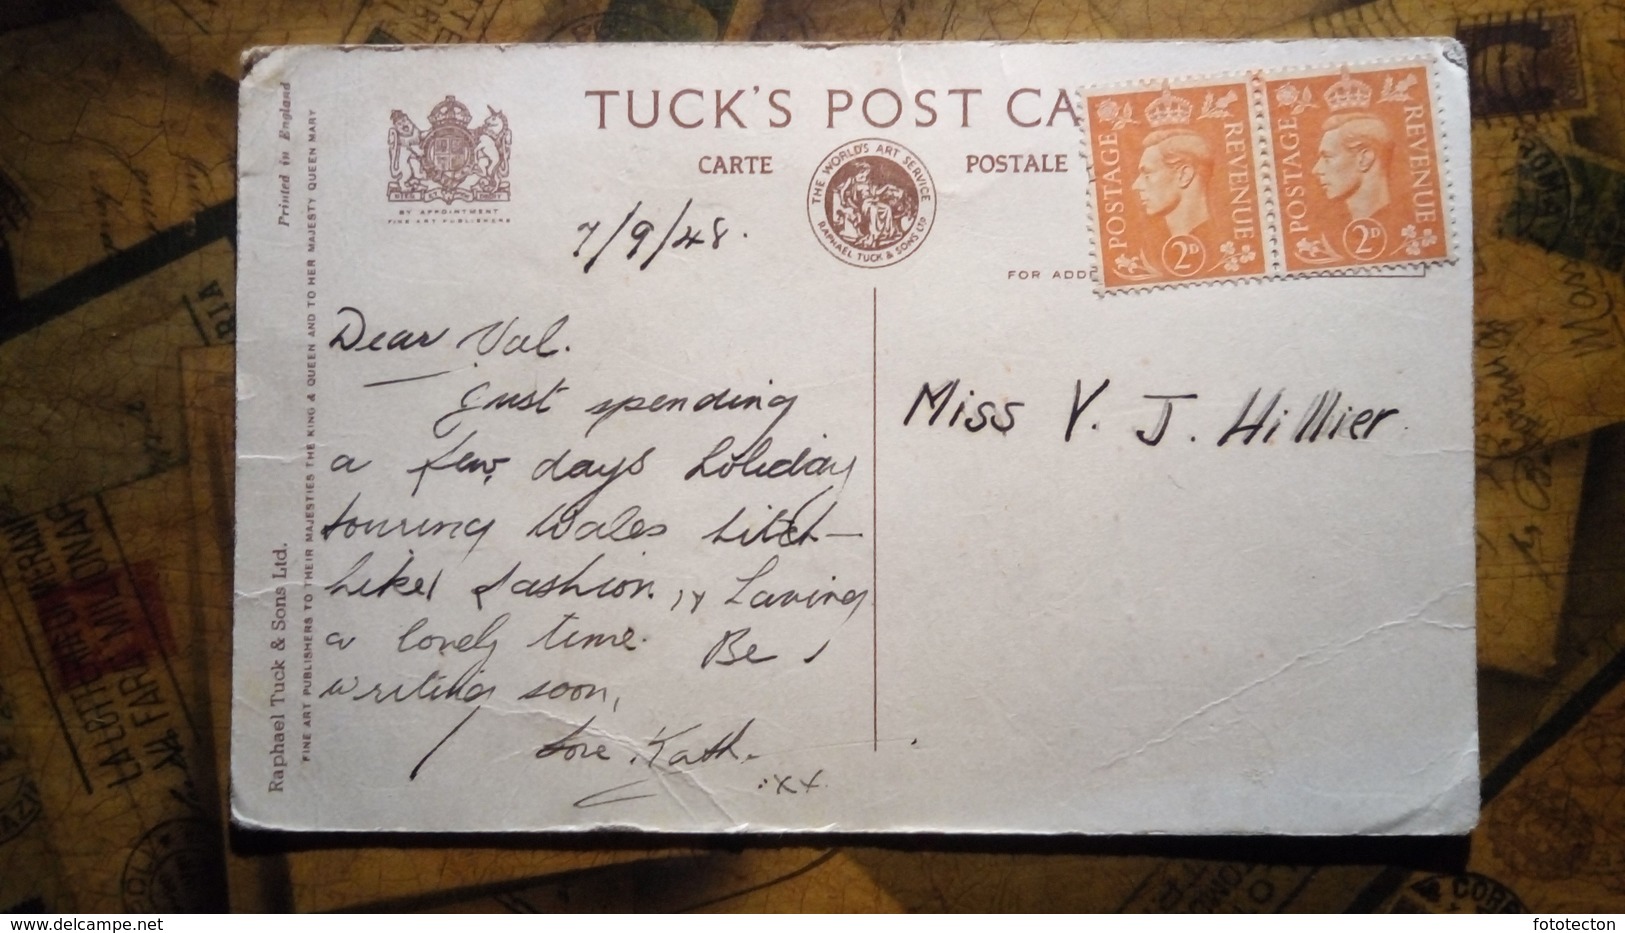 TUCK'S POST CA
CARTE
POSTALE
BY APPOINTMENT
FINE ART PUBLISHERS
THE WORLD'S ART SERVICE
RAPHAEL TUCK & SONS LTD
POSTAGE REVENUE
2D
POSTAGE REVENUE
2D
FOR ADD
7/9/48.
Dear Val.
just spending
a few days holiday
touring Wales hitch-
hike fashion. Having
a lovely time. Be
writing soon,
love Kath.
xx.
Miss V. J. Hillier.
Printed in England
Raphael Tuck & Sons Ltd.
FINE ART PUBLISHERS TO THEIR MAJESTIES THE KING & QUEEN AND TO HER MAJESTY QUEEN MARY
fototecton